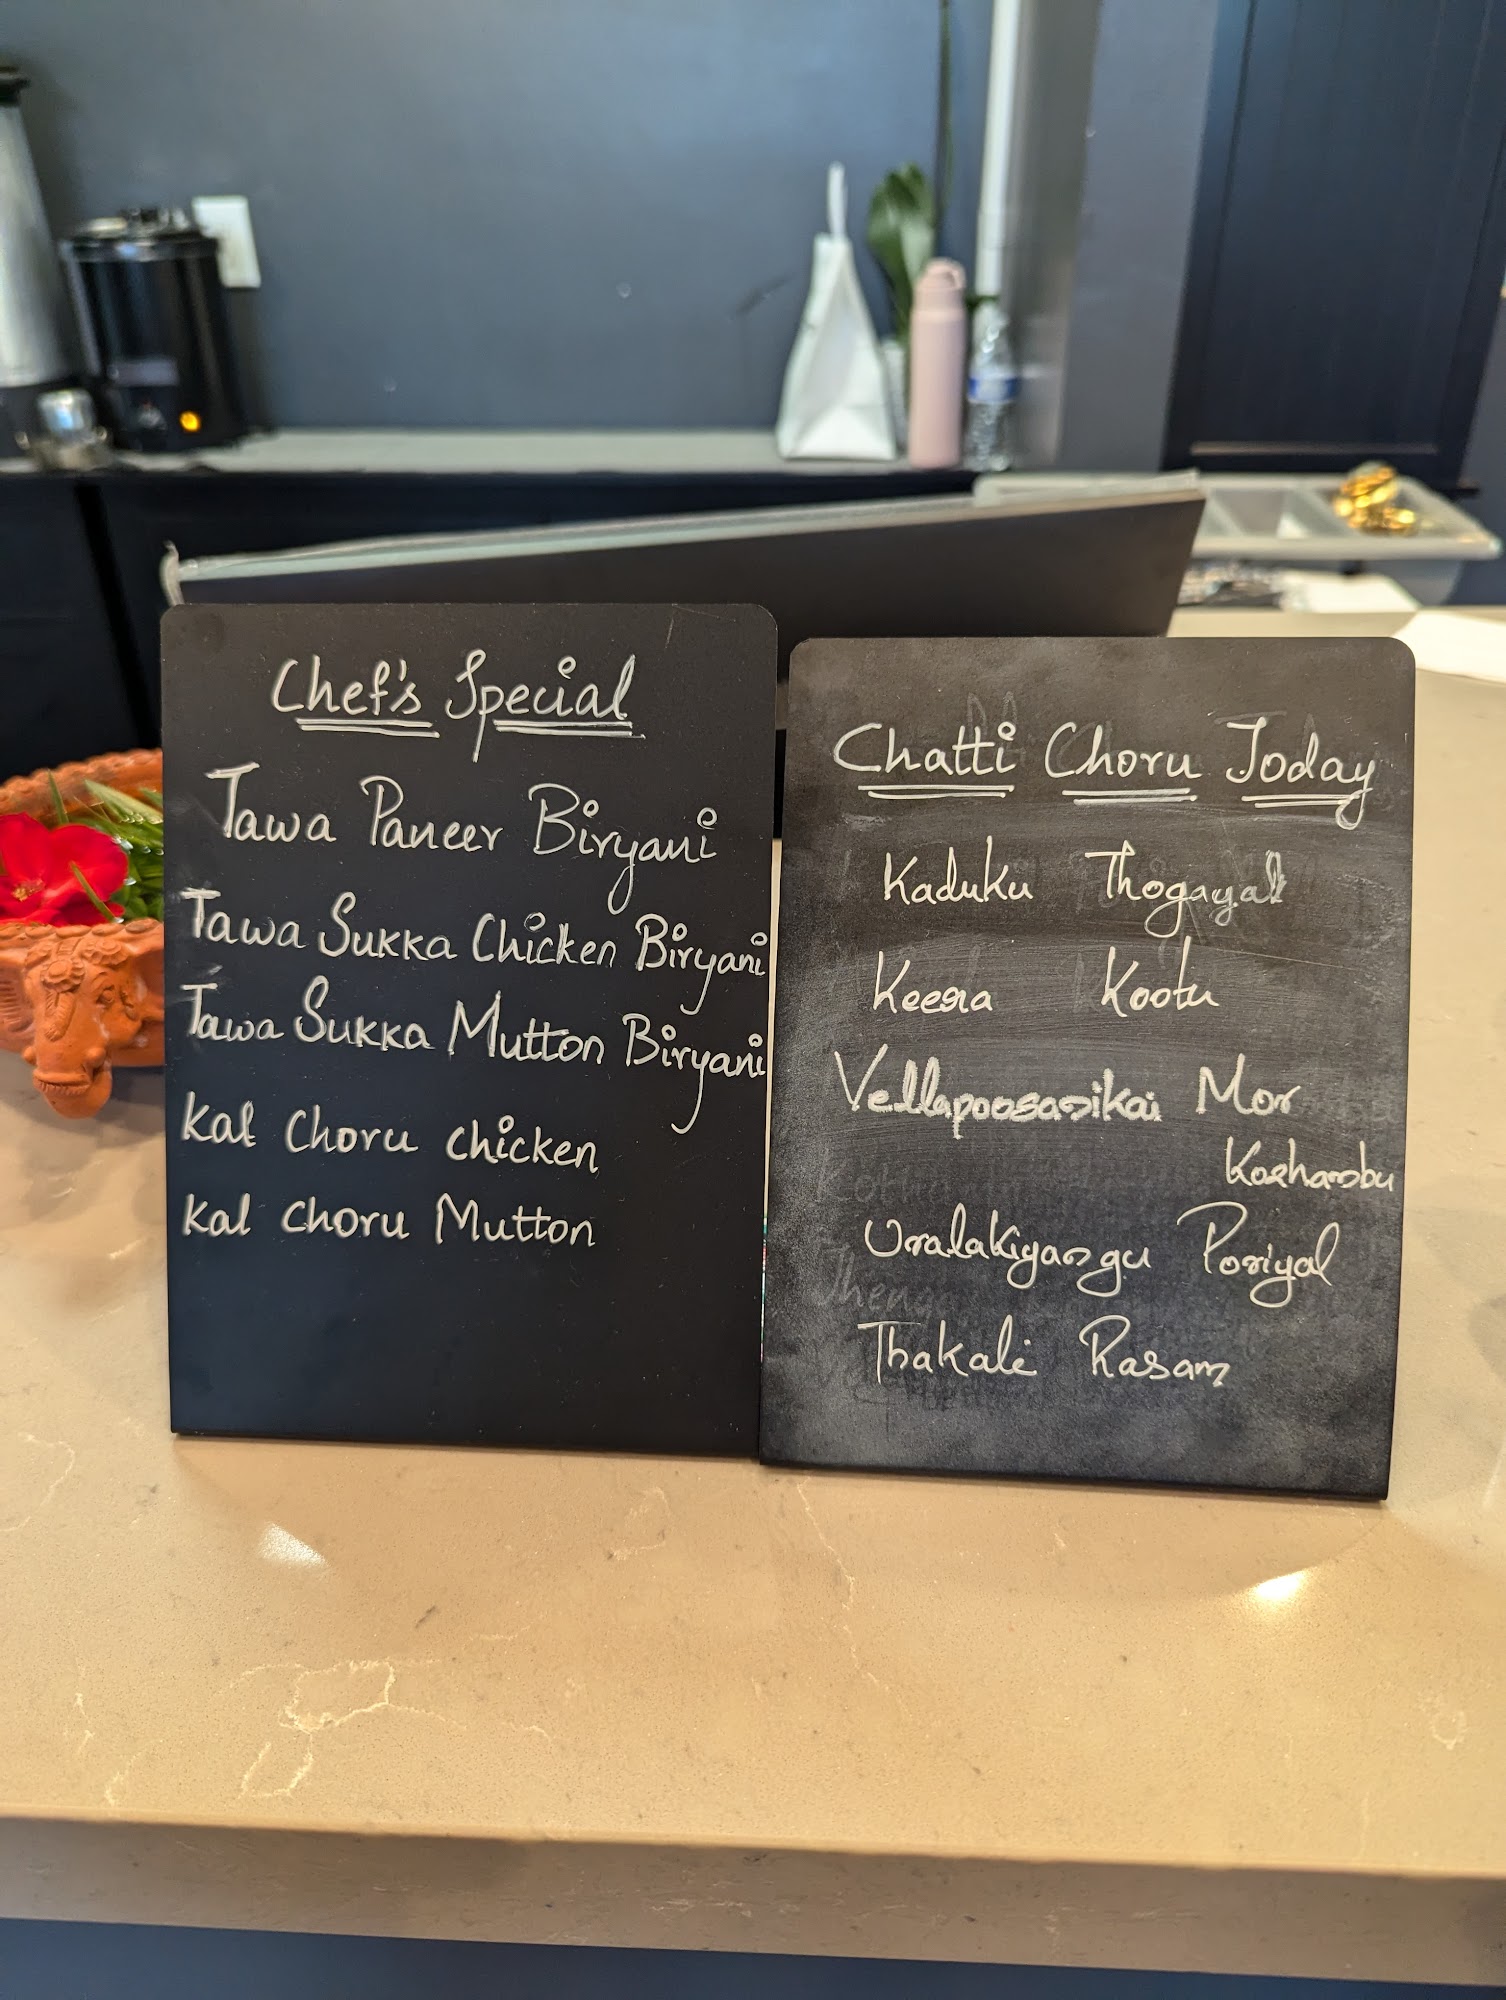 Chef's Special
Tawa Paneer Biryani
Tawa Sukka Chicken Biryani
Tawa Sukka Mutton Biryani
Kal Choru chicken
Kal choru Mutton
Chatti Choru Today
Kaduku Thogayal
Keera Kootu
Vellapoosanikai Mor
Kozhambu
Uralakiyangu Poriyal
Thakali Rasam